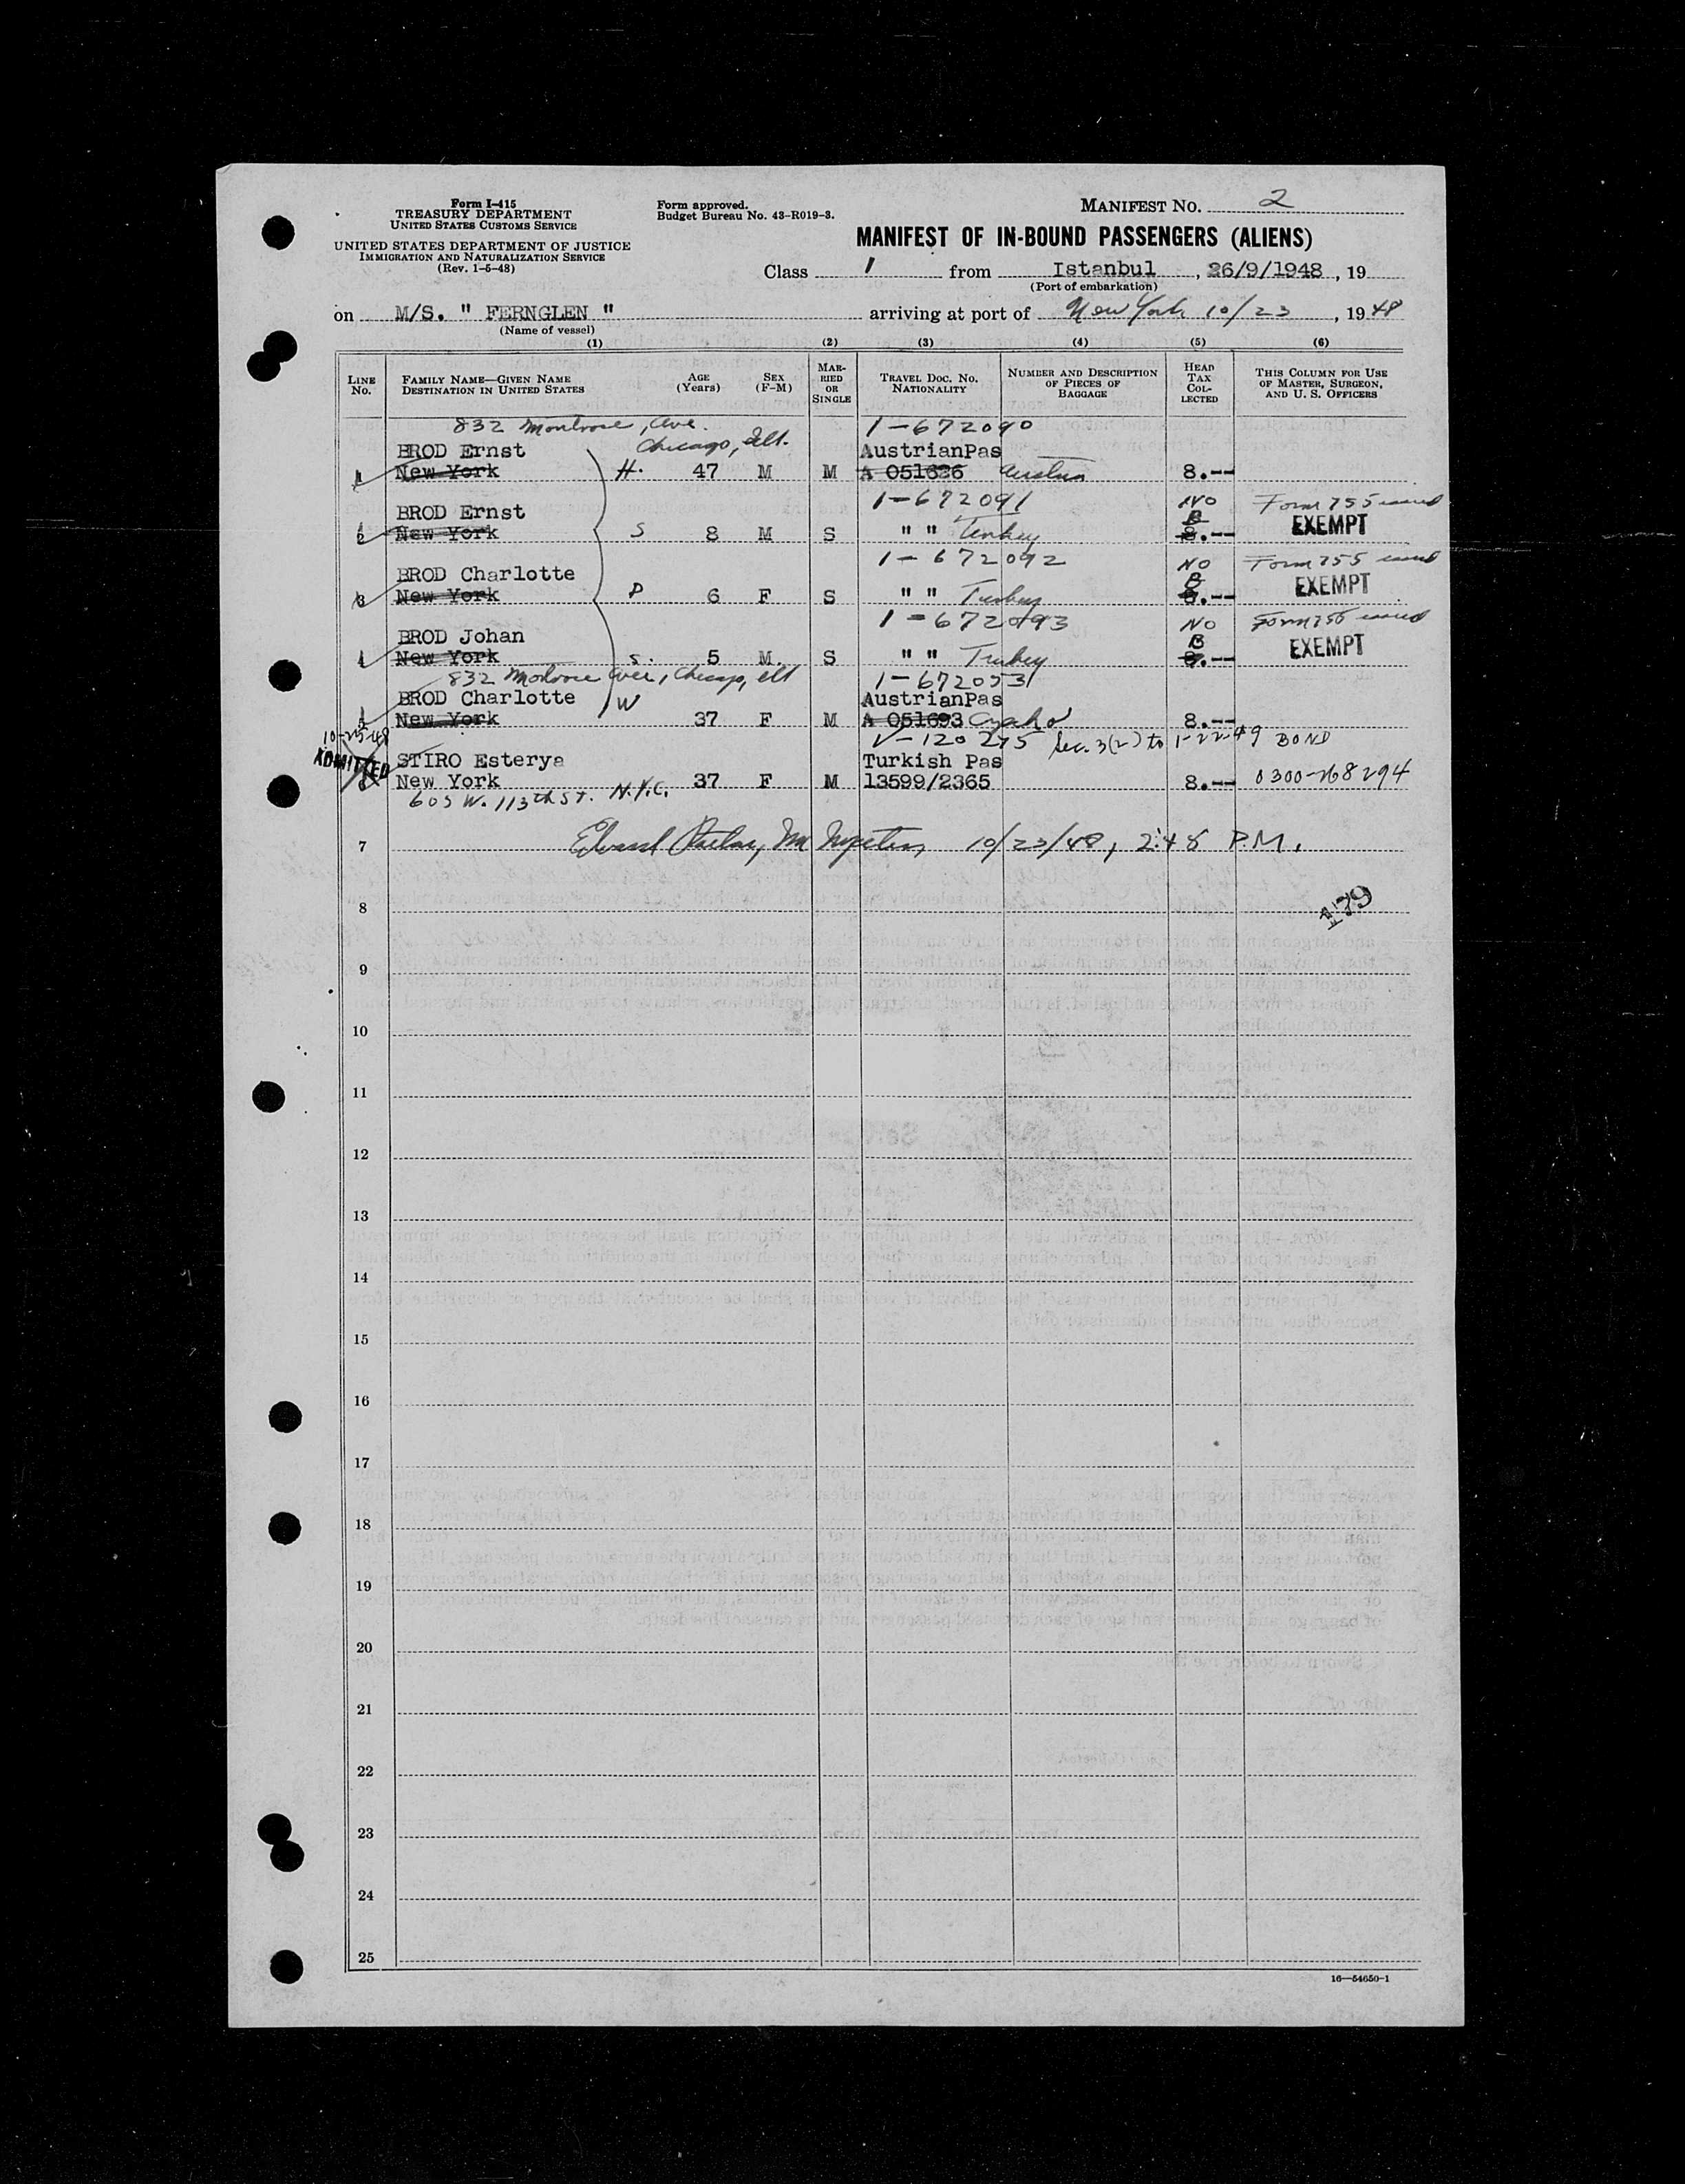 Form I-415
TREASURY DEPARTMENT
UNITED STATES CUSTOMS SERVICE
UNITED STATES DEPARTMENT OF JUSTICE
IMMIGRATION AND NATURALIZATION SERVICE
(Rev. 1-5-48)
Form approved.
Budget Bureau No. 43-R019-3.
MANIFEST NO. 2
MANIFEST OF IN-BOUND PASSENGERS (ALIENS)
Class 1 from Istanbul, 26/9/1948, 19
(Port of embarkation)
on M/S. " FERNGLEN " arriving at port of New York 10/23, 1948
(Name of vessel)
(1) (2) (3) (4) (5) (6)
LINE NO. FAMILY NAME—GIVEN NAME DESTINATION IN UNITED STATES AGE (Years) SEX (F-M) MARRIED OR SINGLE TRAVEL DOC. NO. NATIONALITY NUMBER AND DESCRIPTION OF PIECES OF BAGGAGE HEAD TAX COLLECTED THIS COLUMN FOR USE OF MASTER, SURGEON, AND U. S. OFFICERS
832 Montrose, Ave. 1-672090
BROD Ernst Chicago, Ill. AustrianPas
1 New York H. 47 M M A 051626 Austria 8.--
1-672091 NO Form 755 issued
BROD Ernst B EXEMPT
2 New York S 8 M S " " Turkey 8.--
1-672092 NO Form 755 issued
BROD Charlotte B EXEMPT
3 New York D 6 F S " " Turkey 8.--
1-672093 NO Form 755 issued
BROD Johan B EXEMPT
4 New York S. 5 M. S " " Turkey 8.--
832 Montrose Ave, Chicago, Ill 1-672053
BROD Charlotte W AustrianPas
5 New York 37 F M A 051693 8.--
10-25-48 V-120275 Sec. 3(2) to 1-22-49 BOND
ADMITTED STIRO Esterya Turkish Pas
6 New York 37 F M 13599/2365 8.-- 0300-268294
605 W. 113th St. N.Y.C.
7 10/23/48, 2:45 P.M.
179
8
9
10
11
12
13
14
15
16
17
18
19
20
21
22
23
24
25
16—54650-1